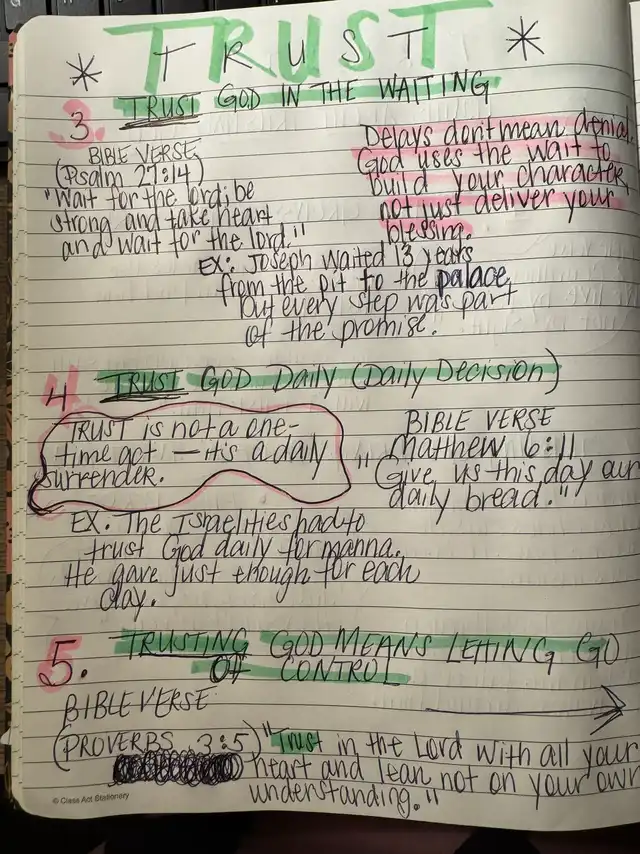 TRUST
* T R U S T *
3. TRUST GOD IN THE WAITING
BIBLE VERSE
(Psalm 27:14)
"Wait for the lord; be
strong and take heart
and wait for the lord."
Delays don't mean denial.
God uses the wait to
build your character,
not just deliver your
blessing.
EX: Joseph waited 13 years
from the pit to the palace,
but every step was part
of the promise.
4 TRUST GOD Daily (Daily Decision)
TRUST is not a one-
time act — it's a daily
surrender.
BIBLE VERSE
Matthew 6:11
"Give us this day our
daily bread."
EX. The Israelities had to
trust God daily for manna.
He gave just enough for each
day.
5. TRUSTING GOD MEANS LETTING GO
OF CONTROL
BIBLE VERSE
(PROVERBS 3:5) "Trust in the Lord with all your
heart and lean not on your own
understanding."
© Class Act Stationary